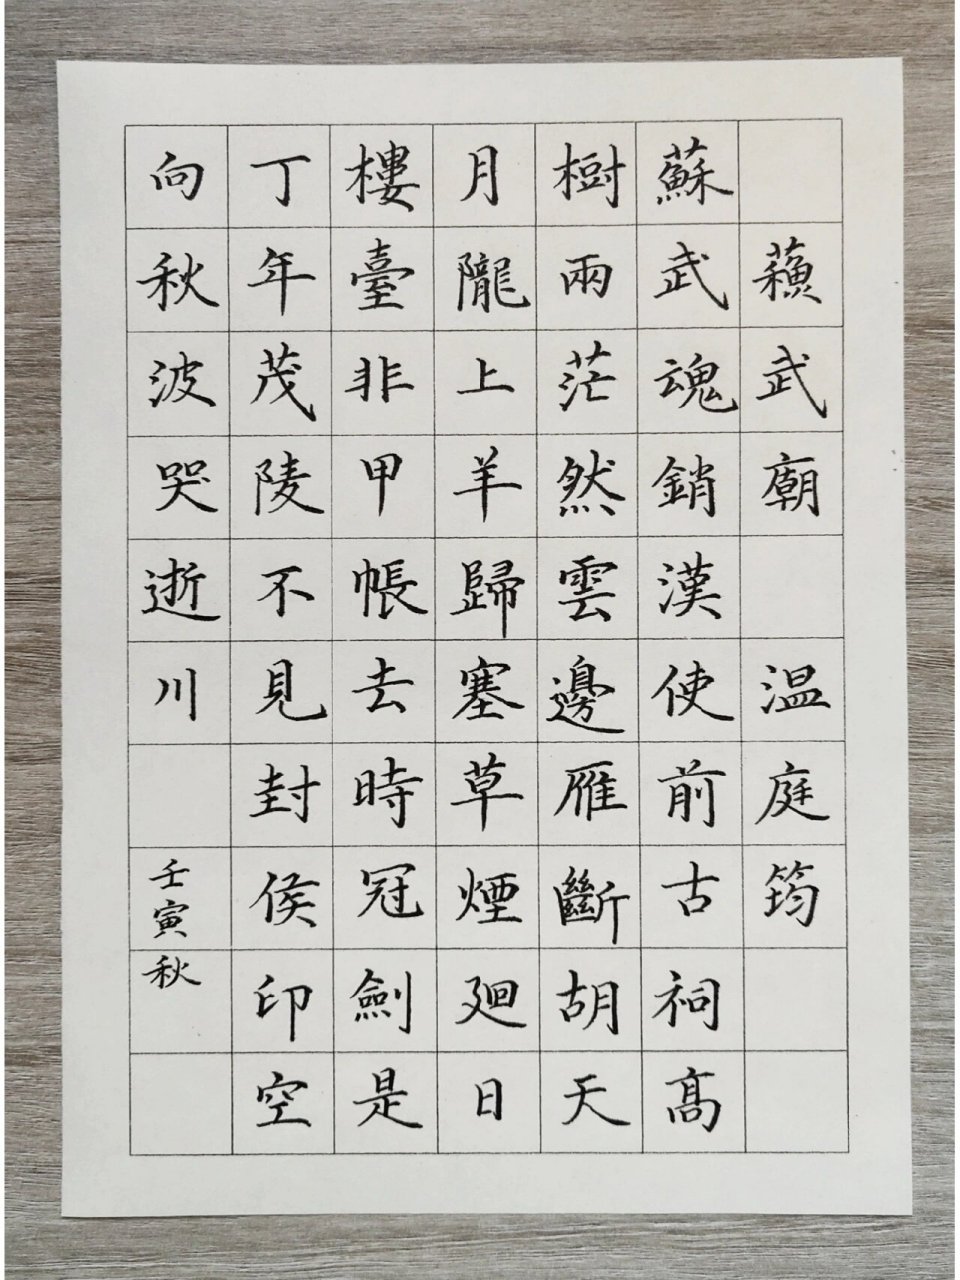 蘓武廟 温庭筠
蘇武魂銷漢使前古祠髙
樹兩茫然雲邊雁斷胡天
月隴上羊歸塞草煙廻日
樓臺非甲帳去時冠劍是
丁年茂陵不見封侯印空
向秋波哭逝川
壬寅秋